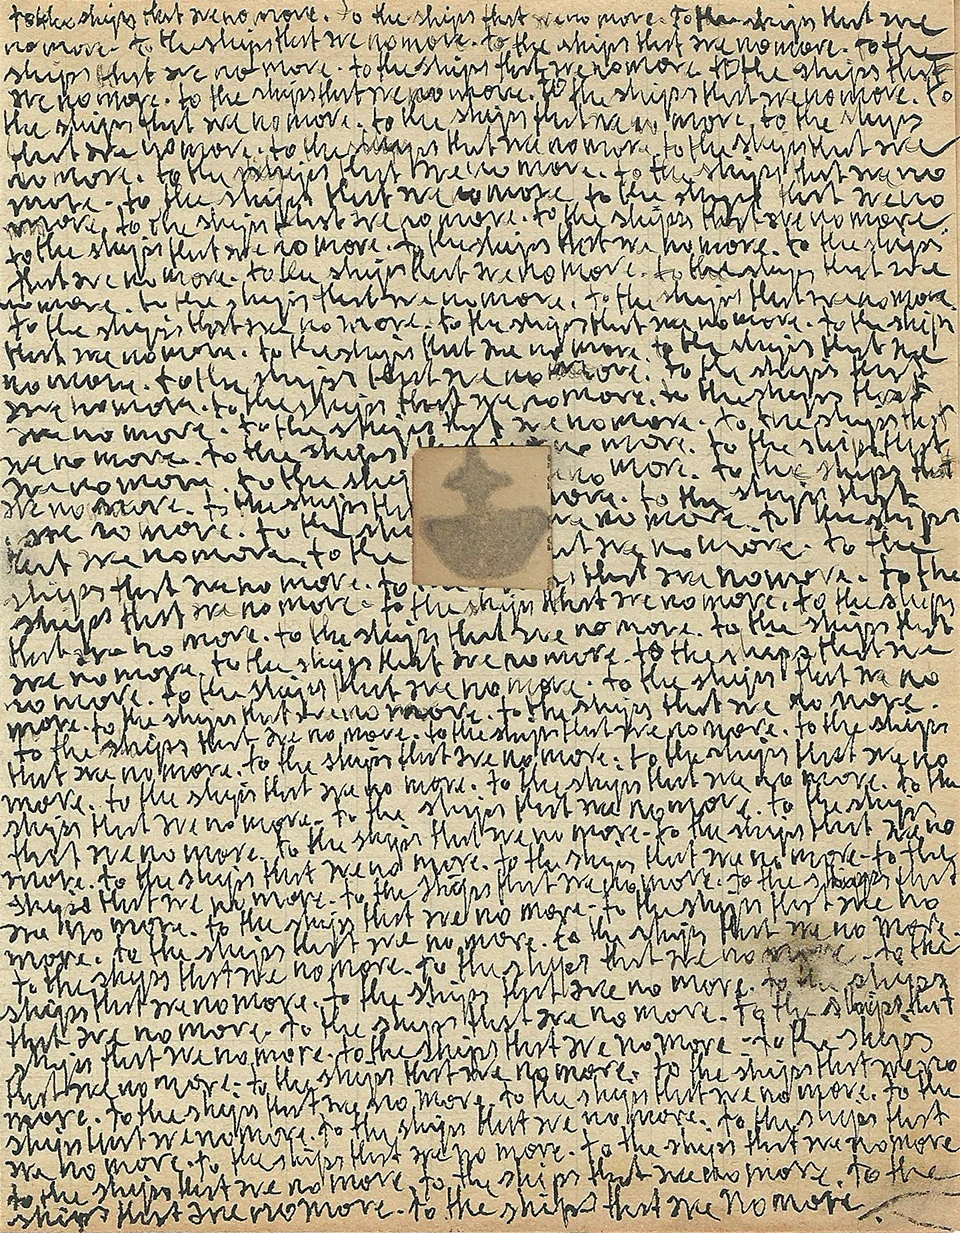 to the ships that are no more. to the ships that are no more. To the ships that are
no more. to the ships that are no more. to the ships that are no more. to the
ships that are no more. to the ships that are no more. to the ships that
are no more. to the ships that are no more. to the ships that are no more. to
the ships that are no more. to the ships that are no more. to the ships
that are no more. to the ships that are no more. to the ships that are
no more. to the ships that are no more. to the ships that are no
more. to the ships that are no more. to the ships that are no
more. to the ships that are no more. to the ships that are no more.
to the ships that are no more. to the ships that are no more. to the ships
that are no more. to the ships that are no more. to the ships that are
no more. to the ships that are no more. to the ships that are no more
to the ships that are no more. to the ships that are no more. to the ships
that are no more. to the ships that are no more. to the ships that are
no more. to the ships that are no more. to the ships that
are no more. to the ships that are no more. to the ships that
are no more. to the ships that are no more. to the ships that
we no more. to the ships no more. to the ships that
are no more. to the no more. to the ships that
are no more. to the ships more. to the ships that
are no more. to the are no more. to the ships
that are no more. to the that are no more. to the
ships that are no more. to that are no more. to the
ships that are no more. to the ships that are no more. to the ships
that are no more. to the ships that are no more. to the ships that
are no more. to the ships that are no more. to the ships that are
no more. to the ships that are no more. to the ships that are no
more. to the ships that are no more. to the ships that are no more.
to the ships that are no more. to the ships that are no more. to the ships
that are no more. to the ships that are no more. to the ships that are no
more. to the ships that are no more. to the ships that are no more. to the
ships that are no more. to the ships that are no more. to the ships
that are no more. to the ships that are no more. to the ships that are no
more. to the ships that are no more. to the ships that are no more. to the
ships that are no more. to the ships that are no more. to the ships that
are no more. to the ships that are no more. to the ships that are no
more. to the ships that are no more. to the ships that are no more.
to the ships that are no more. to the ships that are no more. to the
ships that are no more. to the ships that are no more. to the ships
that are no more. to the ships that are no more. to the ships that
ships that are no more. to the ships that are no more. to the ships
that are no more. to the ships that are no more. to the ships that are no
more. to the ships that are no more. to the ships that are no more. to the
ships that are no more. to the ships that are no more. to the ships that
are no more. to the ships that are no more. to the ships that are no more
to the ships that are no more. to the ships that are no more. to the
ships that are no more. to the ships that are no more.